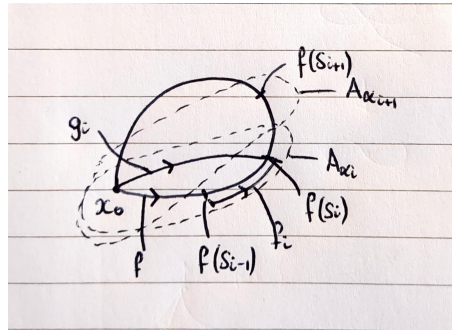 f(Sᵢ₊₁)
A_αᵢ₊₁
gᵢ
A_αᵢ
x₀
f(Sᵢ)
f
f(Sᵢ₋₁)
fᵢ